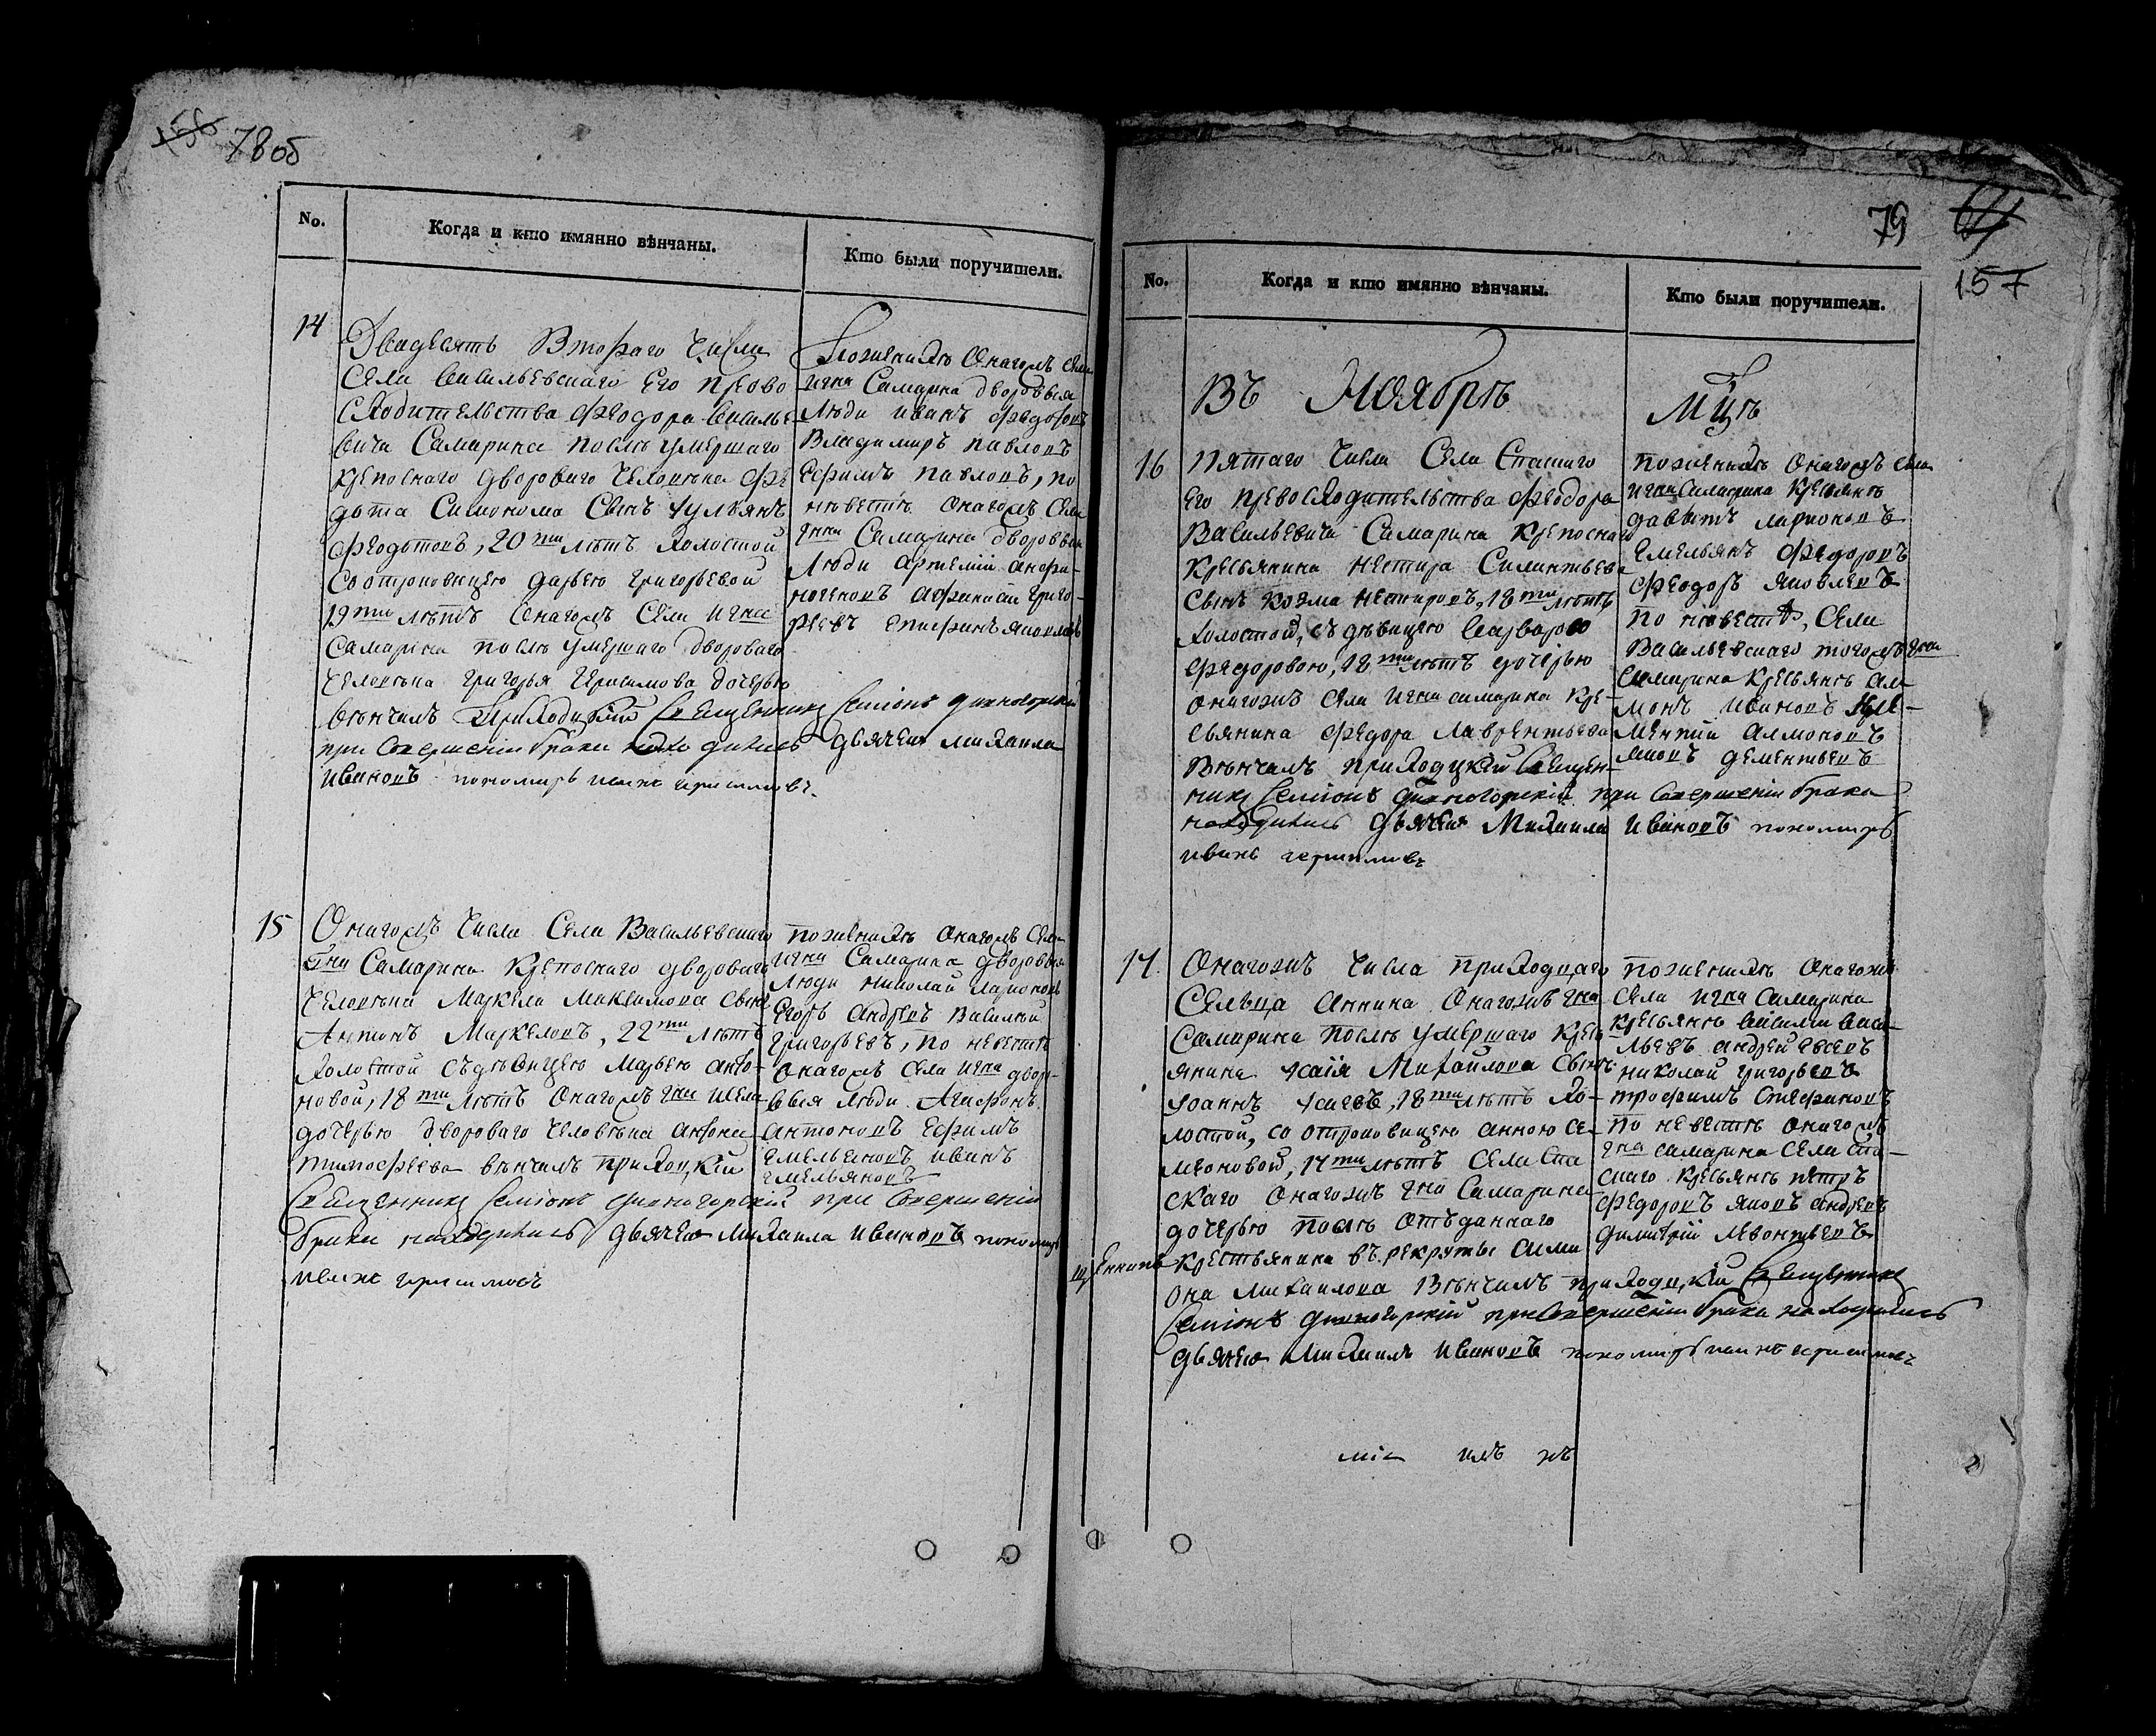 78об
No.
Когда и кто имянно вѣнчаны.
Кто были поручители.
14
Двадесять Втораго Числа
Села Васильевскаго Его прево
сходительства Феодора Василье
вича Самарина послѣ умершаго
крепоснаго дворового человѣка Фе
дота Симонова сынъ Іульянъ
Феодотовъ, 20ти лѣтъ холостой
со отроковицею дарьею григорьевой
19ти лѣтъ Онагожъ Села игна
Самарина послѣ умершаго двороваго
человѣка григорья Герасимова дочерью
вѣнчалъ Приходцкій Священникъ Семіонъ Дивногорскій
при Совершеніи брака находились дьячекъ Михаила
Ивановъ пономарь иванъ герасимовъ.
По женихѣ Онагожъ Села
игна Самарина дворовыя
Люди иванъ Федоровъ
Владимиръ павловъ
Ефимъ павловъ, по
невестѣ Онагожъ Села
гна Самарина дворовыя
Люди Артемій
Афанасій григо-
рьевъ епифанъ яковлевъ
15
Онагожъ Числа Села Васильевскаго
Гна Самарина крепоснаго двороваго
Человѣка Маркела Максимова Сынъ
Антонъ Маркеловъ, 22ти лѣтъ
холостой съ дѣвицею Марьею анто-
новой, 18ти лѣтъ Онагожъ гна и села
дочерью двороваго человѣка антона
тимофеева вѣнчалъ приходцкій
Священникъ Семіонъ Дивногорскій при Совершеніи
брака находились дьячекъ Михаила Ивановъ пономарь
иванъ герасимовъ
По женихѣ Онагожъ Села
игна Самарина дворовыя
Люди николай ларионовъ
Егоръ Андреевъ Василей
григорьевъ, по невестѣ
Онагожъ Села игна двор-
овыя люди Агафонъ
антоновъ Ефимъ
емельяновъ иванъ
емельяновъ
79
157
No.
Когда и кто имянно вѣнчаны.
Кто были поручители.
Въ Ноябрѣ
Мцѣ
16
Пятаго Числа Села Спаскаго
Его превосходительства Феодора
Васильевича Самарина крепоснаго
Кресьянина нестира Силантьева
Сынъ козма нестировъ, 18ти лѣтъ
холостой, съ дѣвицею Варварою
Федоровою, 18ти лѣтъ дочерью
онагожъ Села игна самарина кре-
сьянина Федора лаврентьева
Вѣнчалъ приходцкій Священ-
никъ Семіонъ Дивногорскій при Совершеніи брака
находились дьячекъ Михаила Ивановъ пономарь
иванъ герасимовъ
По женихѣ Онагожъ Села
игна Самарина кресьянѣ
давытъ ларионовъ
Емельянъ Федоровъ
Феодоръ яковлевъ
по невестѣ, Села
Васильевскаго тогожъ гна
Самарина кресьянѣ Фи
монъ ивановъ
ментій
яковъ дементьевъ
17.
Онагожъ Числа приходцаго
Сельца Аннина Онагожъ гна
Самарина послѣ умершаго крес-
янина Ісаія Михайлова Сынъ
Іоаннъ Ісаевъ, 18ти лѣтъ хо-
лостой, со отроковицею анною се-
меоновой, 17ти лѣтъ Села спа
скаго Онагожъ гна Самарина
дочерью послѣ отъданнаго
крестьянина въ рекруты Сими
она Михаилова Вѣнчалъ приходцкій Священникъ
Семіонъ Дивногорскій при Совершеніи брака находились
дьячекъ Михаилъ Ивановъ пономарь иванъ герасимовъ
По женихѣ Онагожъ
Села игна Самарина
кресьянѣ Василіи Васи-
льевъ андрей евсеевъ
николай григорьевъ
трофимъ Стефановъ
По невестѣ онагожъ
гна самарина Села спа-
скаго кресьянѣ петръ
Федоровъ яковъ андреевъ
димитрій Левонтьевъ